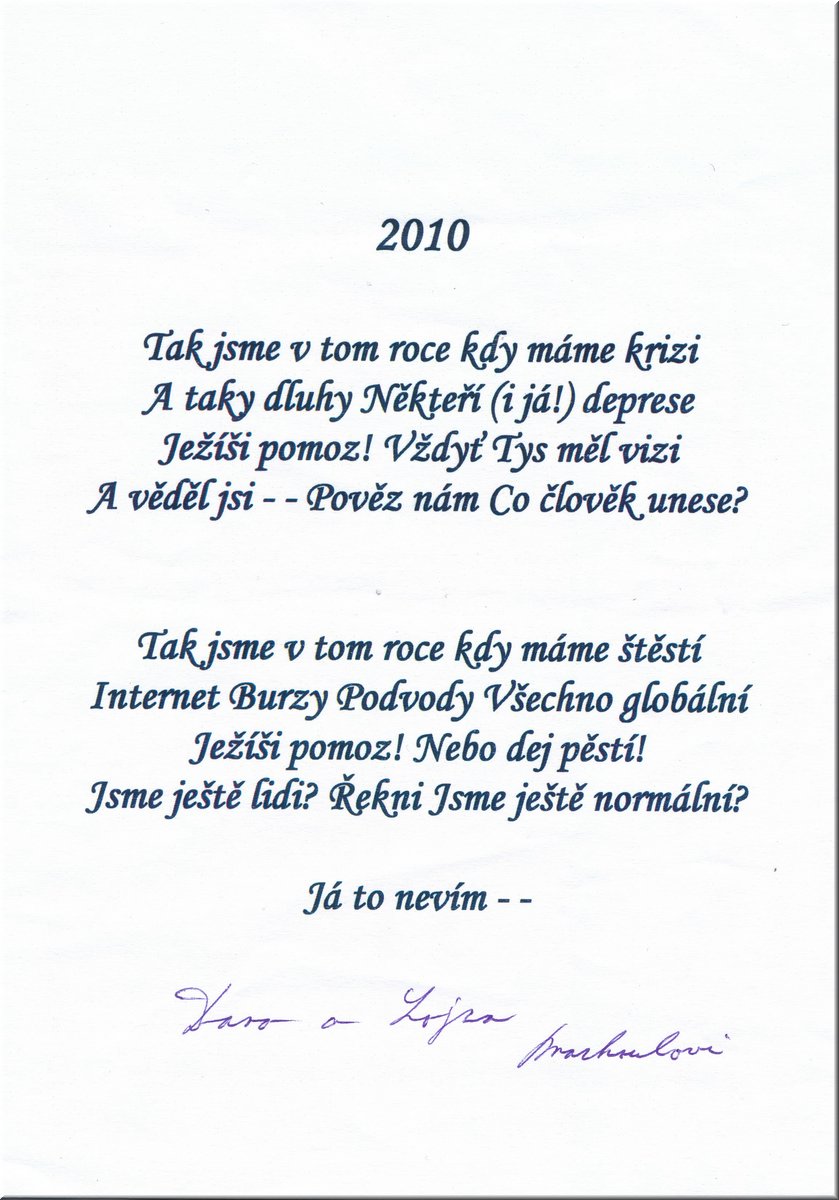 2010
Tak jsme v tom roce kdy máme krizi
A taky dluhy Někteří (i já!) deprese
Ježíši pomoz! Vždyť Tys měl vizi
A věděl jsi - - Pověz nám Co člověk unese?
Tak jsme v tom roce kdy máme štěstí
Internet Burzy Podvody Všechno globální
Ježíši pomoz! Nebo dej pěstí!
Jsme ještě lidi? Řekni Jsme ještě normální?
Já to nevím - -
a Lojza